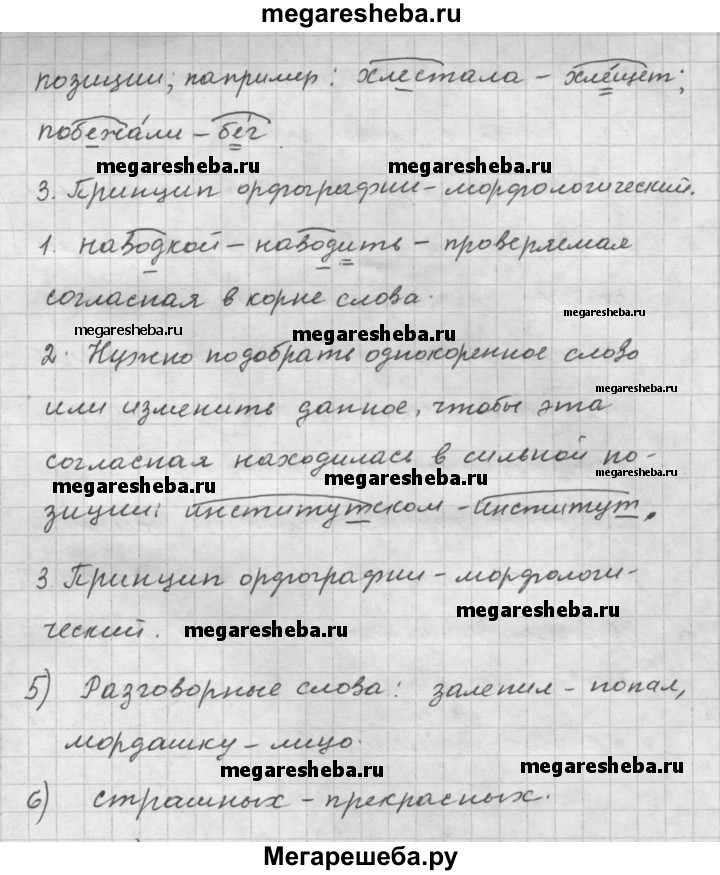 megaresheba.ru
позиции, например: хлестала – хлещет;
побежа́ли – бег
megaresheba.ru megaresheba.ru
3. Принцип орфографии – морфологический.
1. наводкой – наводить – проверяемая
согласная в корне слова.
megaresheba.ru
megaresheba.ru megaresheba.ru
2. Нужно подобрать однокоренное слово
megaresheba.ru
или изменить данное, чтобы эта
согласная находилась в сильной по-
megaresheba.ru megaresheba.ru megaresheba.ru
зиции: институтском – институт.
3 Принцип орфографии – морфологи-
megaresheba.ru
ческий. megaresheba.ru
5) Разговорные слова: залепил – попал,
мордашку – лицо.
megaresheba.ru megaresheba.ru
6) страшных – прекрасных.
Мегарешеба.ру